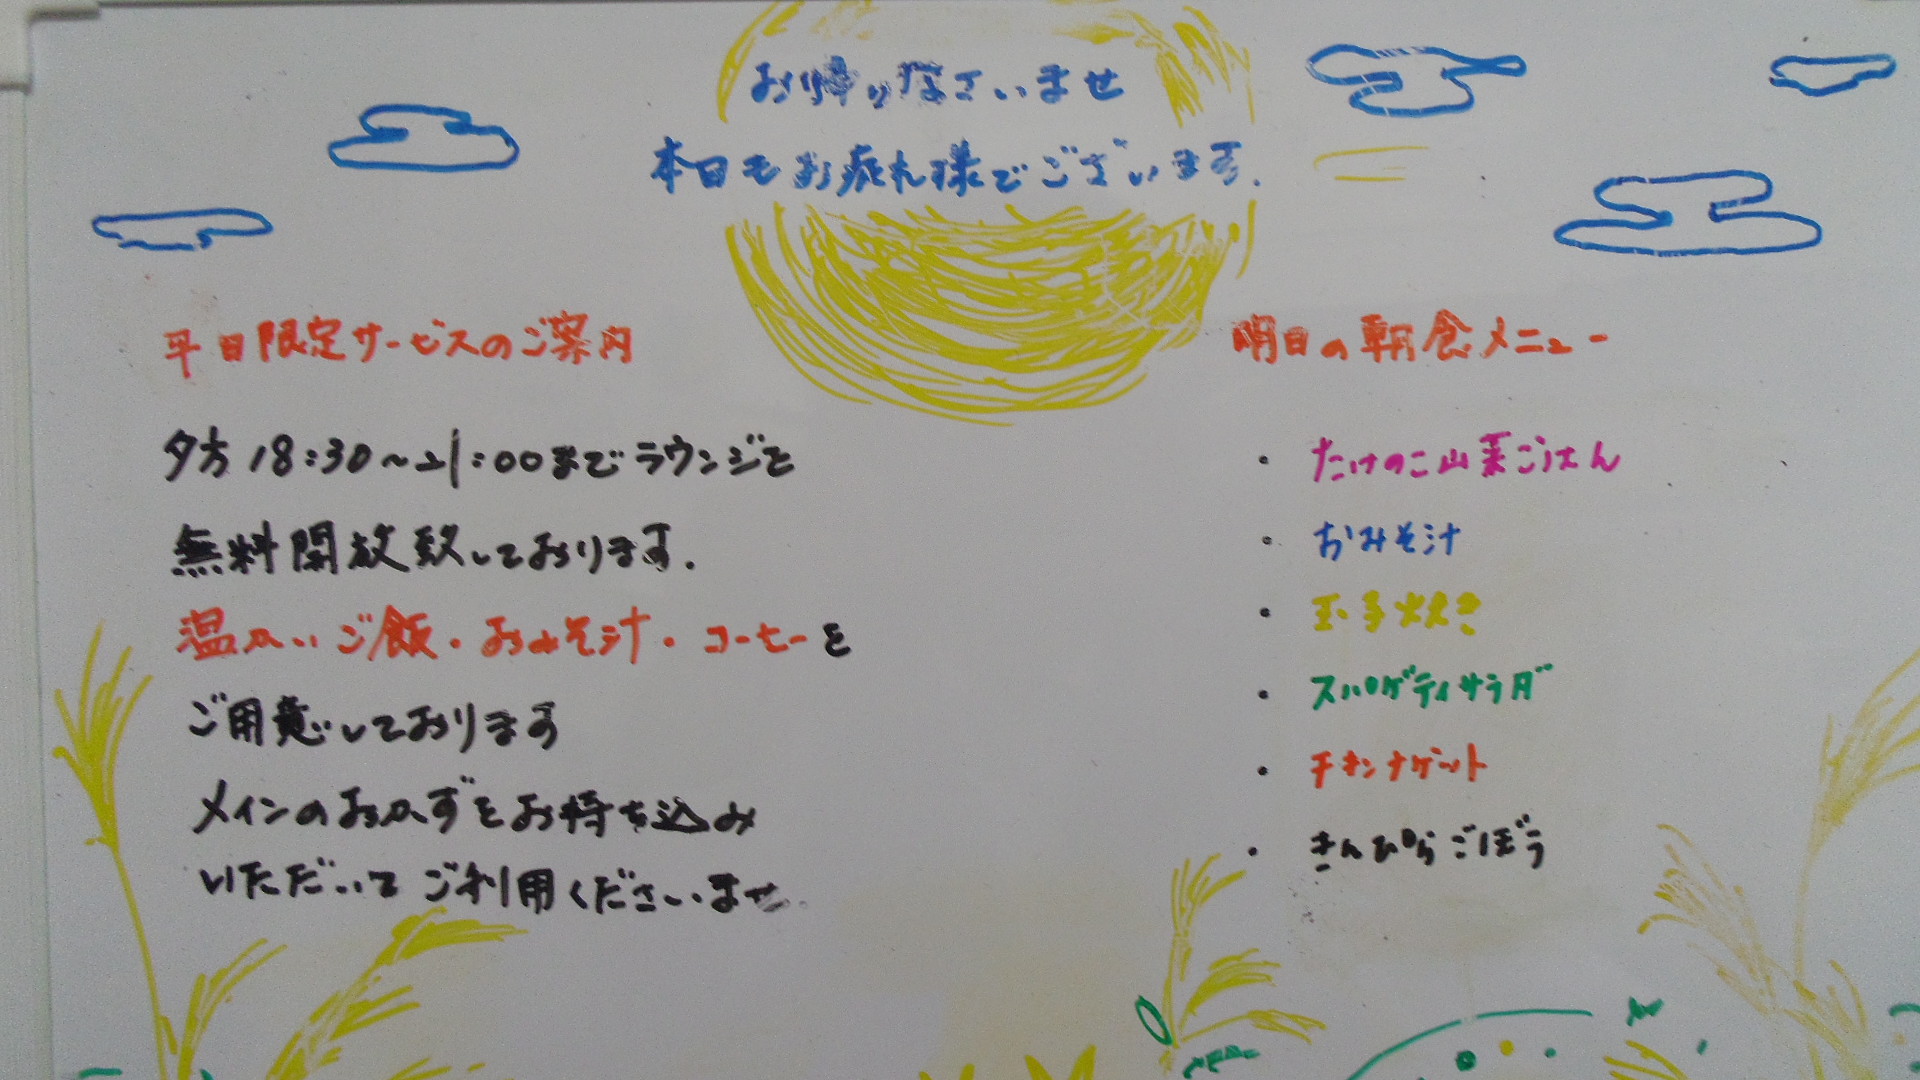 お帰りなさいませ
本日もお疲れ様でございます.
平日限定サービスのご案内
夕方18:30～21:00までラウンジを
無料開放致しております.
温かいご飯・おみそ汁・コーヒーを
ご用意しております
メインのおかずをお持ち込み
いただいてご利用くださいませ.
明日の朝食メニュー
・たけのこ山菜ごはん
・おみそ汁
・玉子焼き
・スパゲティサラダ
・チキンナゲット
・きんぴらごぼう